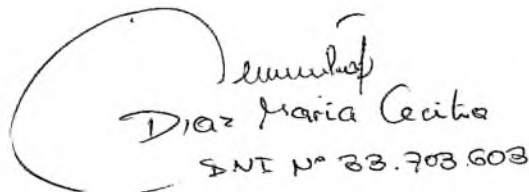 Diaz Maria Cecilia
DNI Nº 33.703.603